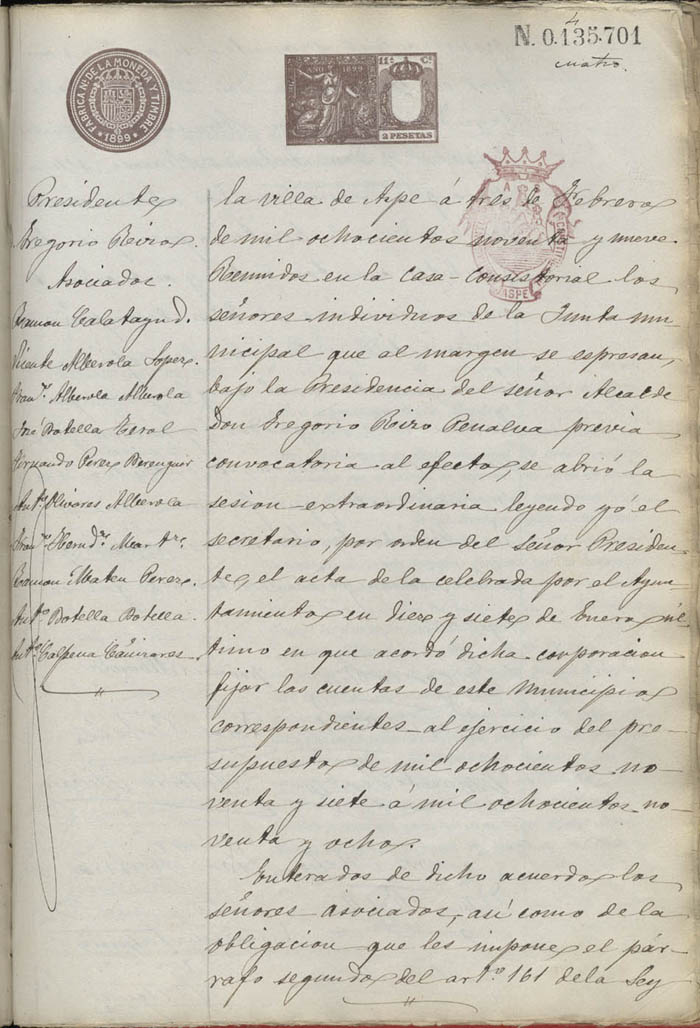 4
N. 0.135.701
cuatro.
FABRICA Nl. DE LA MONEDA Y TIMBRE
1899
AÑO 1899
11ª Cª
2 PESETAS
ASPE
Presidente
Gregorio Rizo
Asociados.
Ramon Calatayud.
Vicente Alberola Lopez.
Franco. Alberola Alberola
José Botella Erol
Fernando Perez Berenguer
Anto. Olivares Alberola
Franco. Hernds. Martz.
Ramon Mateu Perez
Anto. Botella Botella
Anto. Calpena Cañizares
la villa de Aspe á tres de Febrero
de mil ochocientos noventa y nueve
Reunidos en la Casa-Consistorial los
señores individuos de la Junta mu-
nicipal que al margen se espresan,
bajo la Presidencia del señor Alcalde
Don Gregorio Rizo Penalva previa
convocatoria al efecto, se abrió la
sesion extraordinaria leyendo yó el
secretario, por orden del señor Presiden-
te, el acta de la celebrada por el Ayun-
tamiento en diez y siete de Enero úl-
timo en que acordó dicha corporacion
fijar las cuentas de este Municipio
correspondientes al ejercicio del pre-
supuesto de mil ochocientos no-
venta y siete á mil ochocientos no-
venta y ocho.
Enterados de dicho acuerdo los
señores asociados, así como de la
obligacion que les impone el pár-
rafo segundo del arto. 161 de la Ley